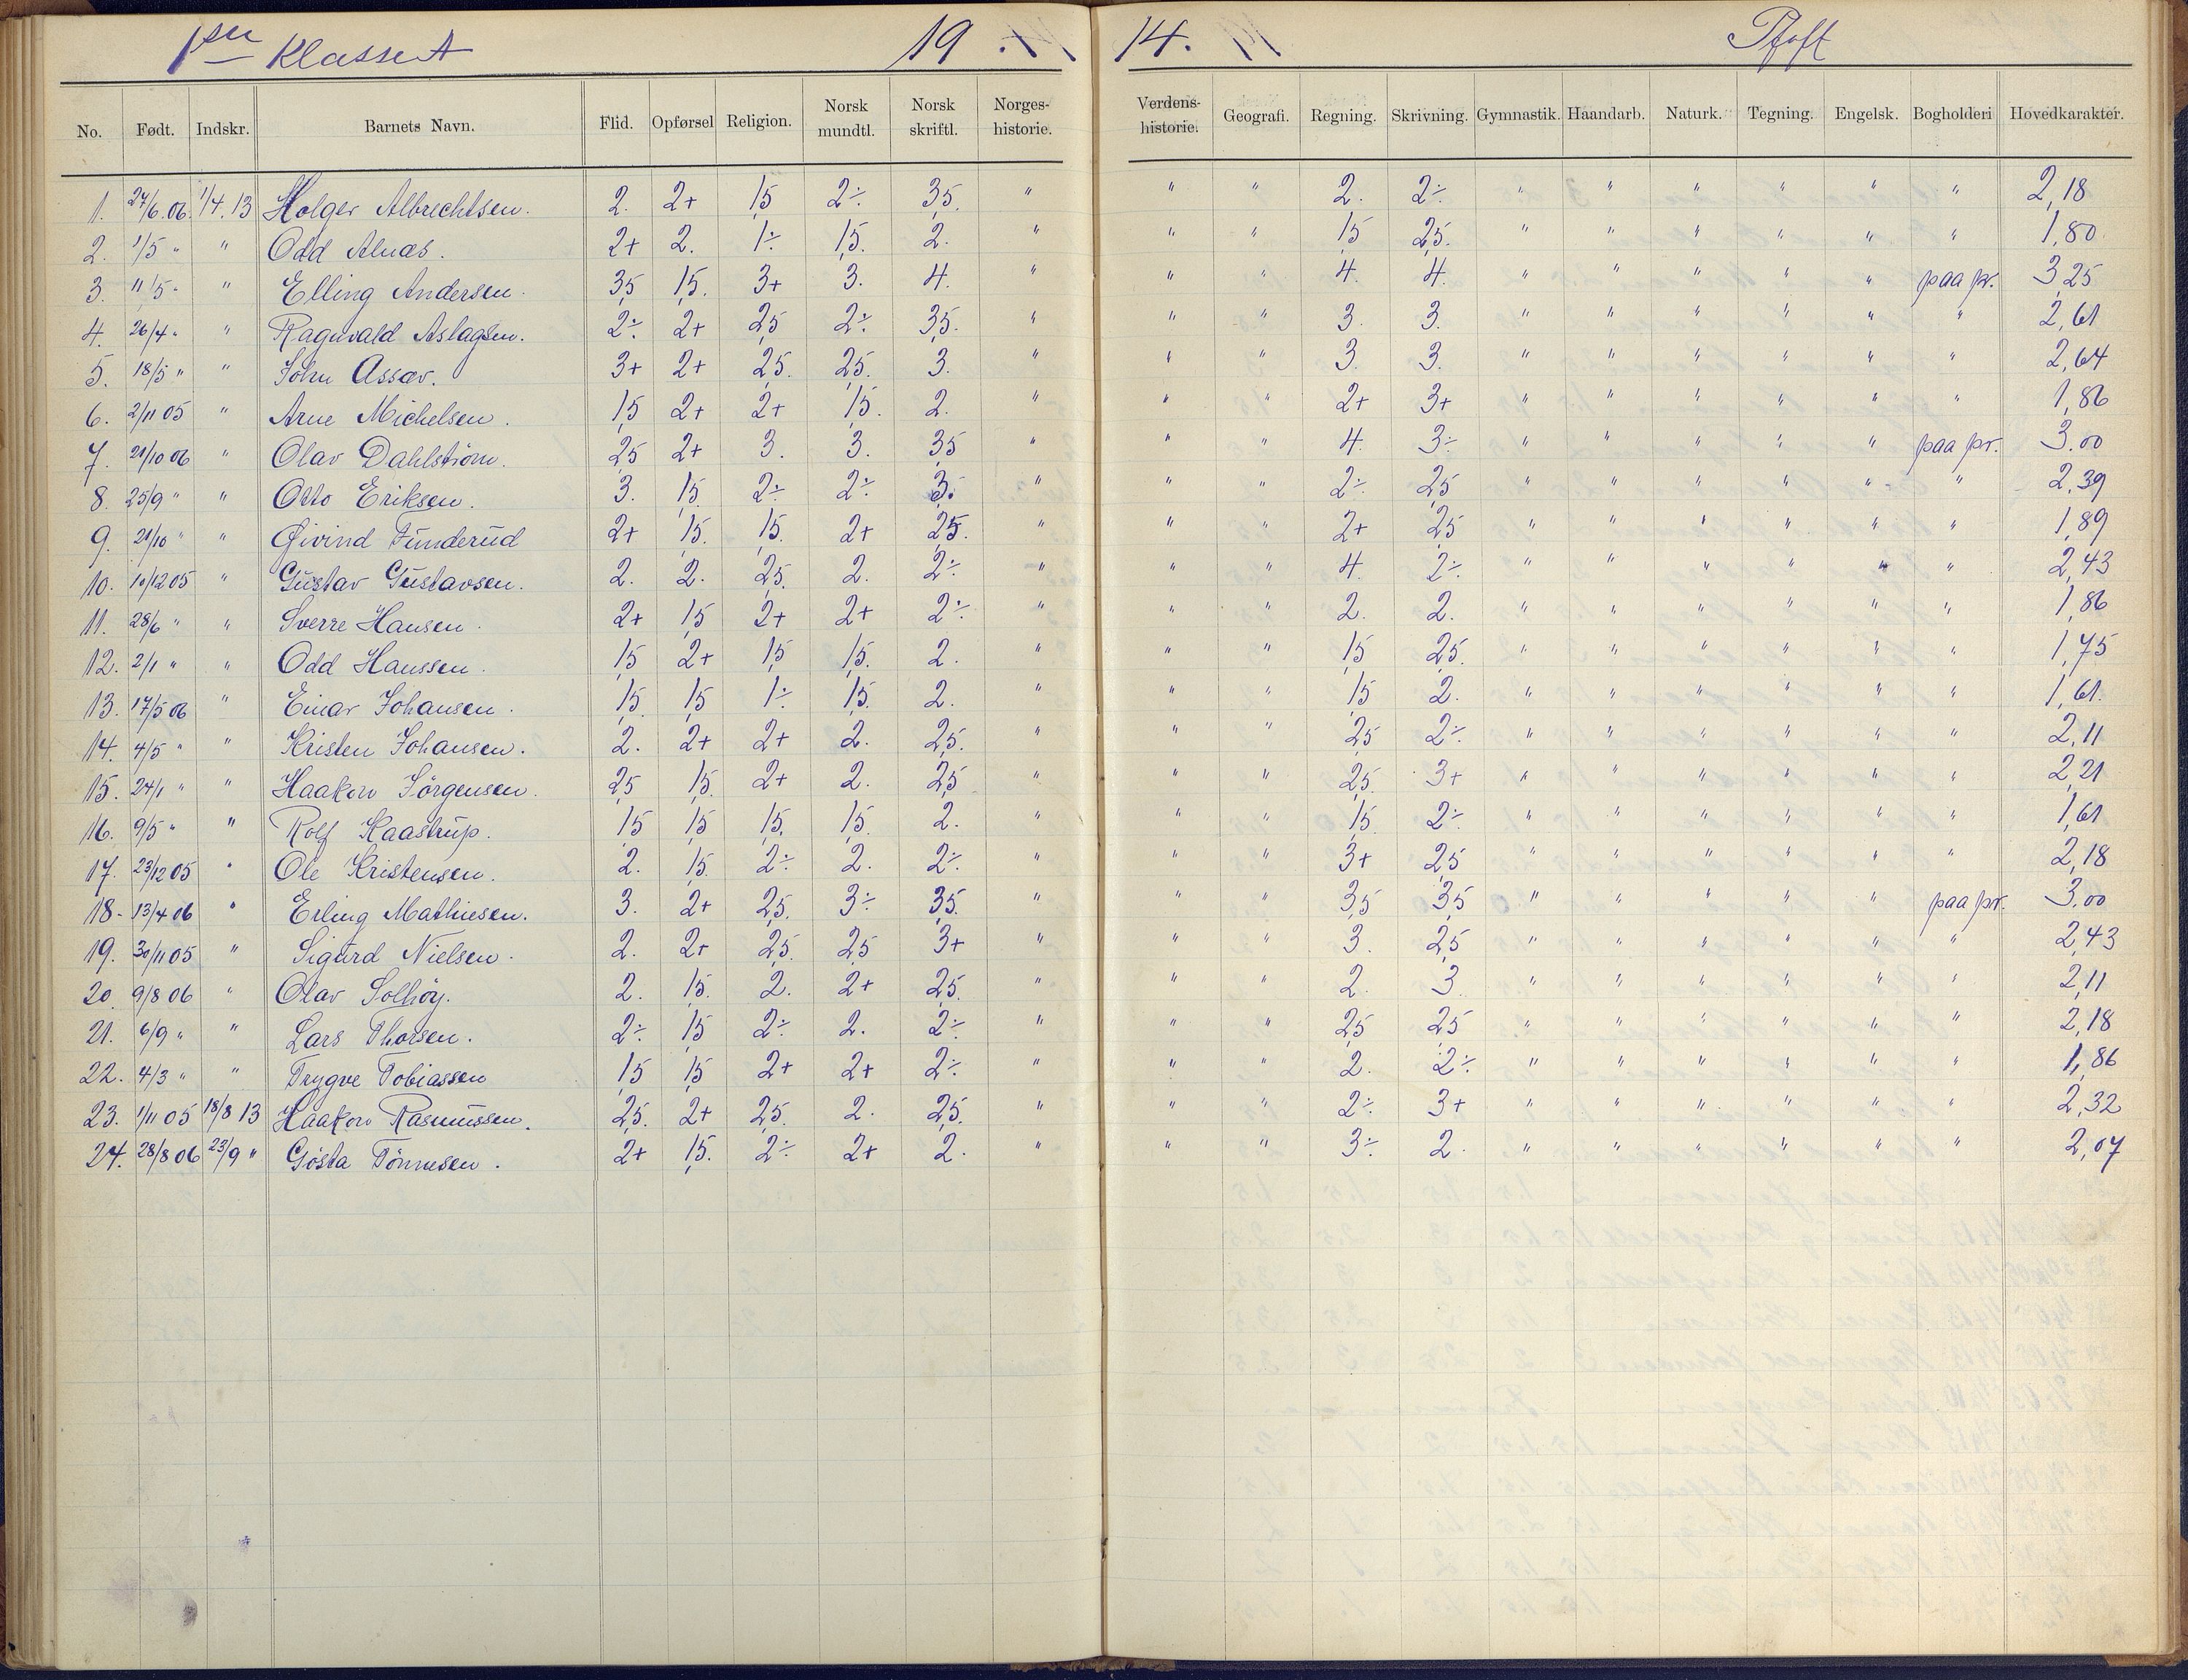 1ste Klasse A 19 14.
No. Født. Indskr. Barnets Navn. Flid. Opførsel Religion. Norsk mundtl. Norsk skriftl. Norges-historie. Verdens-historie. Geografi. Regning. Skrivning. Gymnastik. Haandarb. Naturk. Tegning. Engelsk. Bogholderi Hovedkarakter.
1. 24/6.06. 1/4.13 Holger Albrechtsen. 2. 2+ 1,5 2÷ 3,5. " " " 2. 2÷ " " " " " " 2,18
2. 1/5 " " Odd Alnæs. 2+ 2. 1÷ 1,5. 2. " " " 1,5 2,5. " " " " " " 1,80
3. 11/5 " " Elling Andersen. 3,5 1,5. 3+ 3. 4. " " " 4. 4. " " " " " paa pr. 3,25
4. 26/4 " " Ragnvald Aslagsen. 2÷ 2+ 2,5 2÷ 3,5. " " " 3. 3. " " " " " " 2,61
5. 18/5 " " John Assev. 3+ 2+ 2,5. 2,5. 3. " " " 3. 3. " " " " " " 2,64
6. 2/11 05 " Arne Michelsen. 1,5 2+ 2+ 1,5. 2. " " " 2+ 3+ " " " " " " 1,86
7. 21/10 06 " Olav Dahlstrøm. 2,5 2+ 3. 3. 3,5 " " " 4. 3÷ " " " " " paa pr. 3.00
8. 25/9 " " Otto Eriksen. 3. 1,5 2÷ 2÷ 3. " " " 2÷ 2,5 " " " " " " 2,39
9. 21/10 " " Øivind Funderud 2+ 1,5. 1,5. 2+ 2,5. " " " 2+ 2,5 " " " " " " 1,89
10. 10/12 05 " Gustav Gustavsen. 2. 2. 2,5. 2. 2÷ " " " 4. 2÷ " " " " " " 2,43
11. 28/6 " " Sverre Hansen. 2+ 1,5 2+ 2+ 2÷ " " " 2. 2. " " " " " " 1,86
12. 2/1 " " Odd Hanssen. 1,5 2+ 1,5 1,5. 2. " " " 1,5 2,5. " " " " " " 1,75
13. 17/5 06 " Einar Johansen. 1,5 1,5 1÷ 1,5. 2. " " " 1,5 2. " " " " " " 1,61.
14. 4/5 " " Kristen Johansen. 2. 2+ 2+ 2. 2,5. " " " 2,5 2÷ " " " " " " 2,11
15. 24/1 " " Haakon Jørgensen. 2,5 1,5. 2+ 2. 2,5 " " " 2,5. 3+ " " " " " " 2,21
16. 9/5 " " Rolf Kaastrup. 1,5 1,5 1,5. 1,5. 2. " " " 1,5. 2÷ " " " " " " 1,61
17. 23/12 05 " Ole Kristensen. 2. 1,5. 2÷ 2. 2÷ " " " 3+ 2,5 " " " " " " 2,18
18. 13/4 06 " Erling Mathiesen. 3. 2+ 2,5. 3÷ 3,5. " " " 3,5 3,5 " " " " " paa pr. 3.00
19. 30/11 05 " Sigurd Nielsen. 2. 2+ 2,5. 2,5 3+ " " " 3. 2,5 " " " " " " 2,43
20. 9/8 06 " Olav Solhöy. 2. 1,5. 2. 2+ 2,5. " " " 2. 3. " " " " " " 2,11
21. 6/9 " " Lars Thorsen. 2÷ 1,5 2÷ 2. 2÷ " " " 2,5 2,5 " " " " " " 2,18
22. 4/3 " " Trygve Tobiassen 1,5 1,5 2+ 2+ 2÷ " " " 2. 2÷ " " " " " " 1,86
23. 1/11 05 18/8 13 Haakon Rasmussen. 2,5. 2+ 2,5. 2. 2,5. " " " 2÷ 3+ " " " " " " 2,32
24. 28/8 06 23/9 " Gösta Tönnesen. 2+ 1,5. 2÷ 2+ 2. " " " 3÷ 2. " " " " " " 2,07